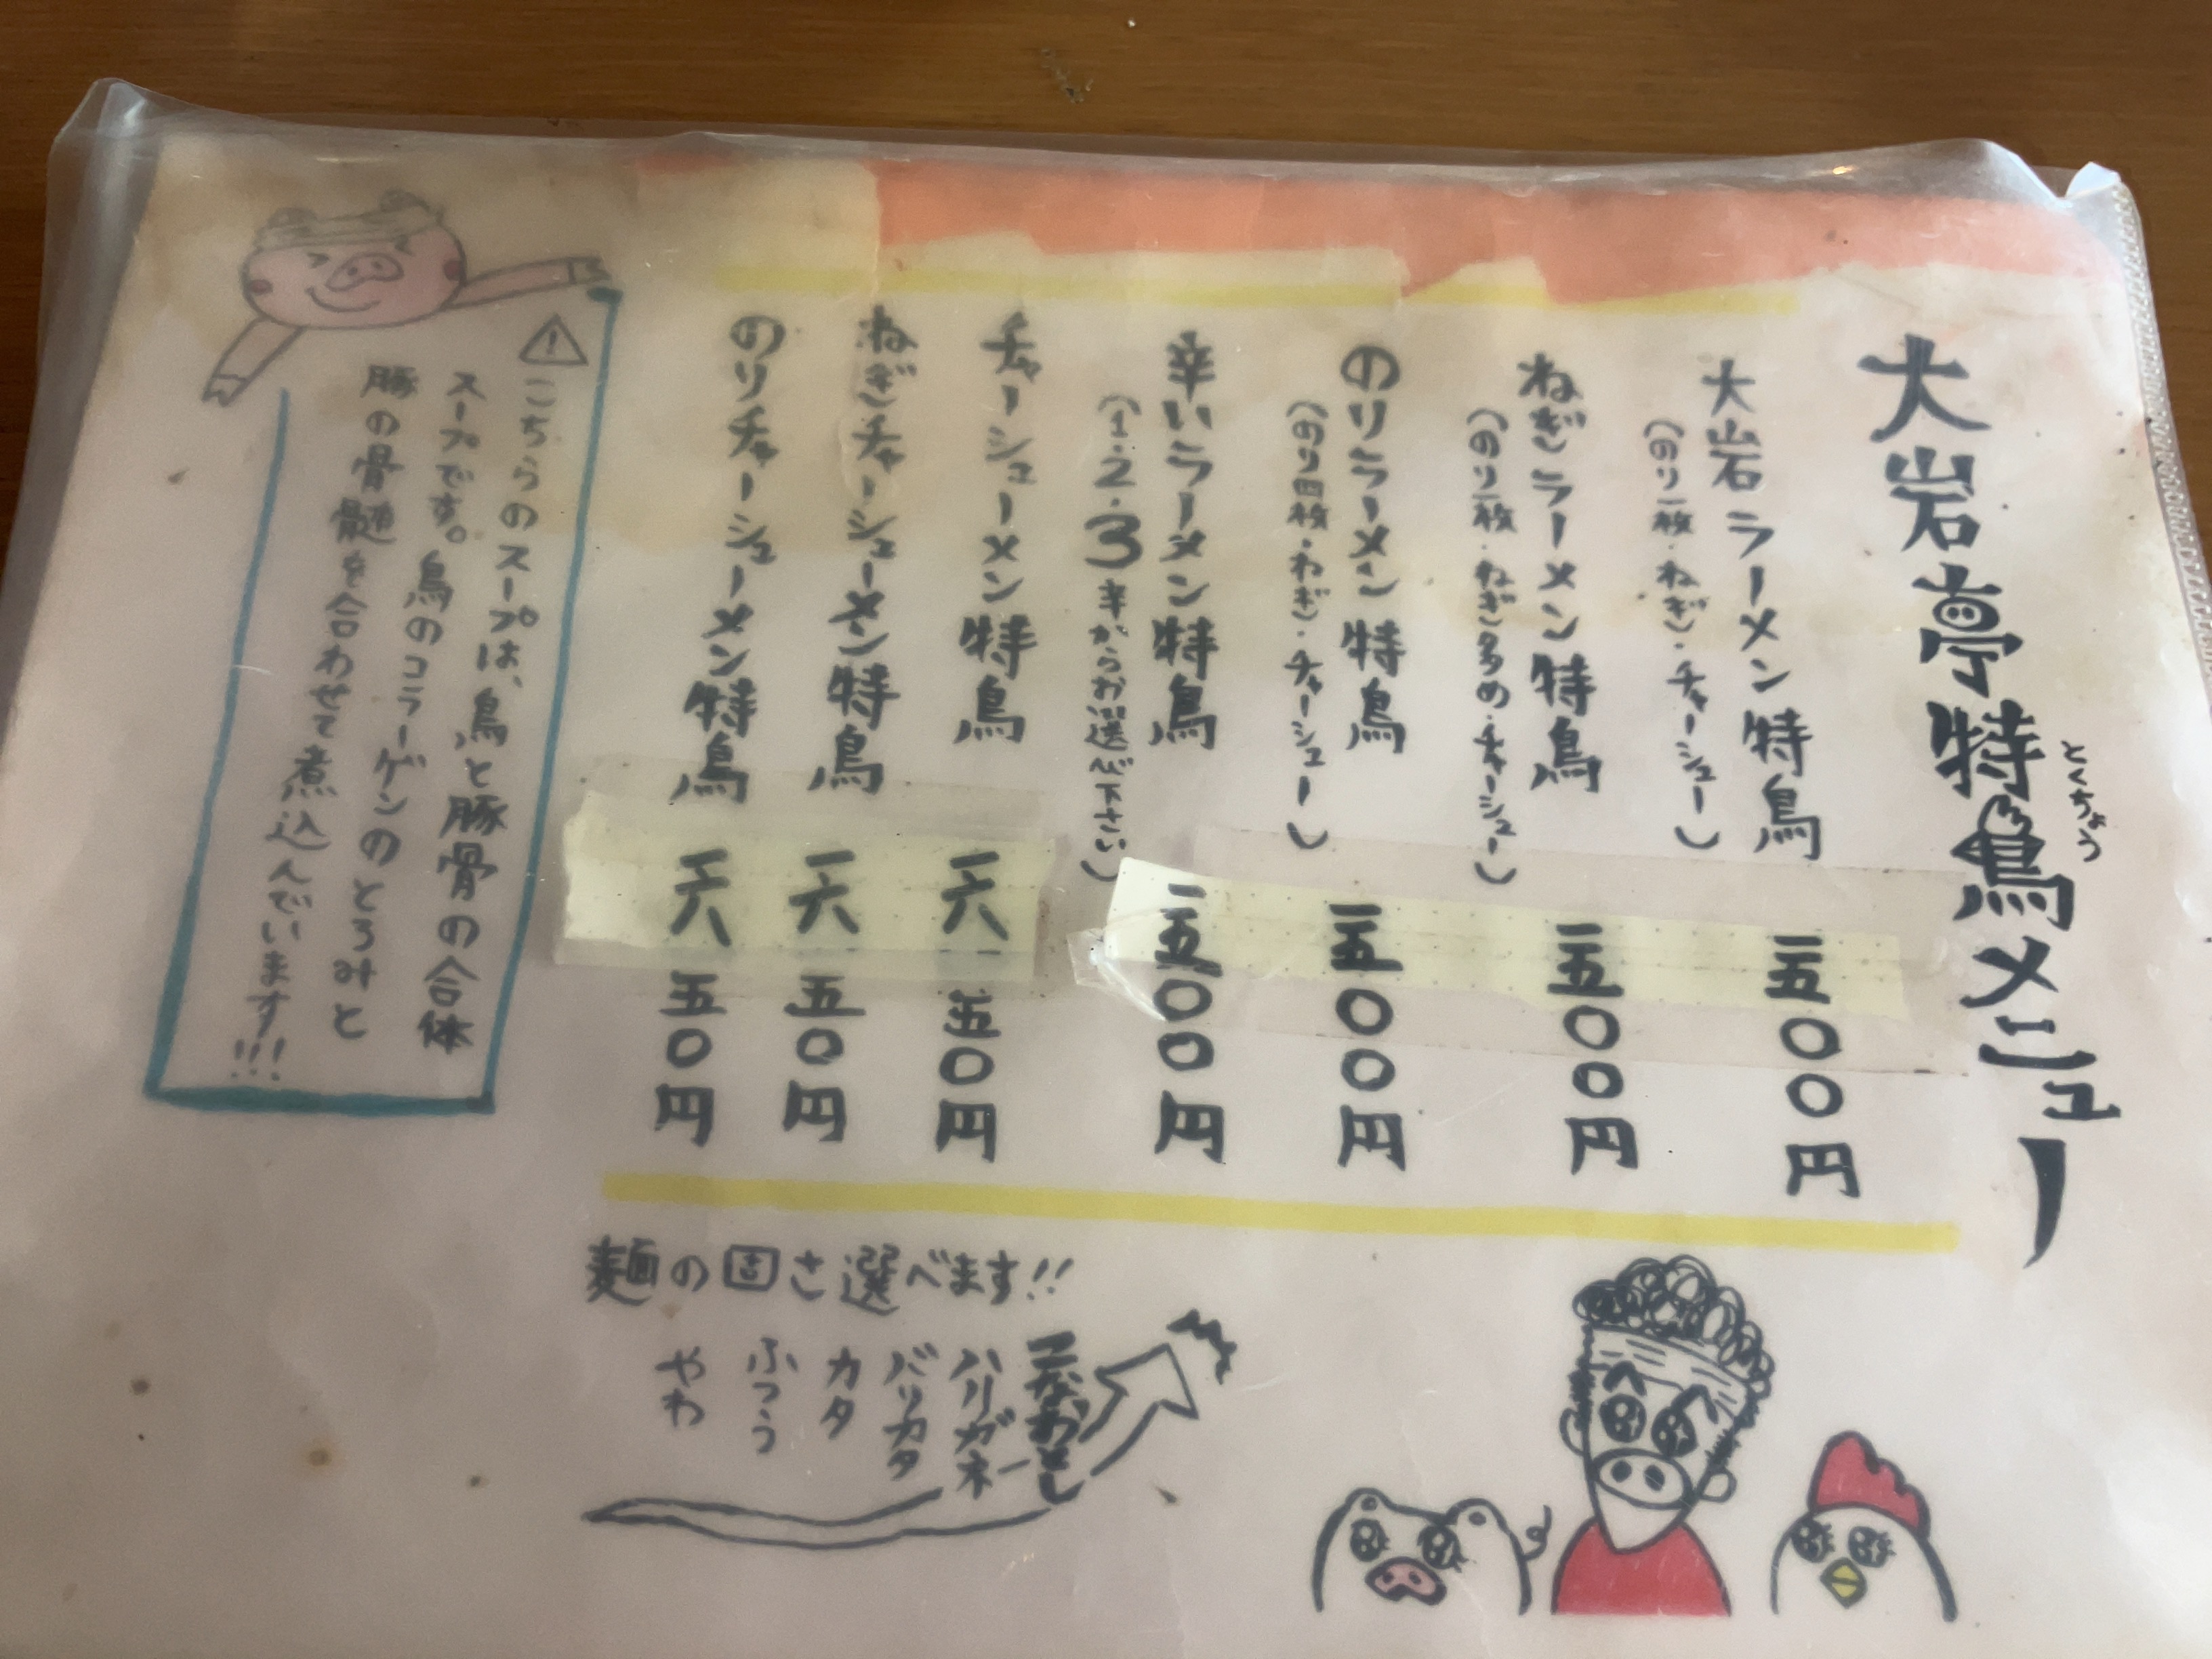 大岩亭特鳥メニュー
とくちょう
大岩ラーメン特鳥 一五〇〇円
(のり一枚・ねぎ・チャーシュー)
ねぎラーメン特鳥 一五〇〇円
(のり一枚・ねぎ多め・チャーシュー)
のりラーメン特鳥 一五〇〇円
(のり四枚・ねぎ・チャーシュー)
辛いラーメン特鳥 一五〇〇円
(1.2.3辛からお選べ下さい)
チャーシューメン特鳥 一六五〇円
ねぎチャーシューメン特鳥 一六五〇円
のりチャーシューメン特鳥 一六五〇円
こちらのスープは、鳥と豚骨の合体
スープです。鳥のコラーゲンのとろみと
豚の骨髄を合わせて煮込んでいます!!!
麺の固さ選べます!!
粉おとし
ハリガネ
バリカタ
カタ
ふつう
やわ